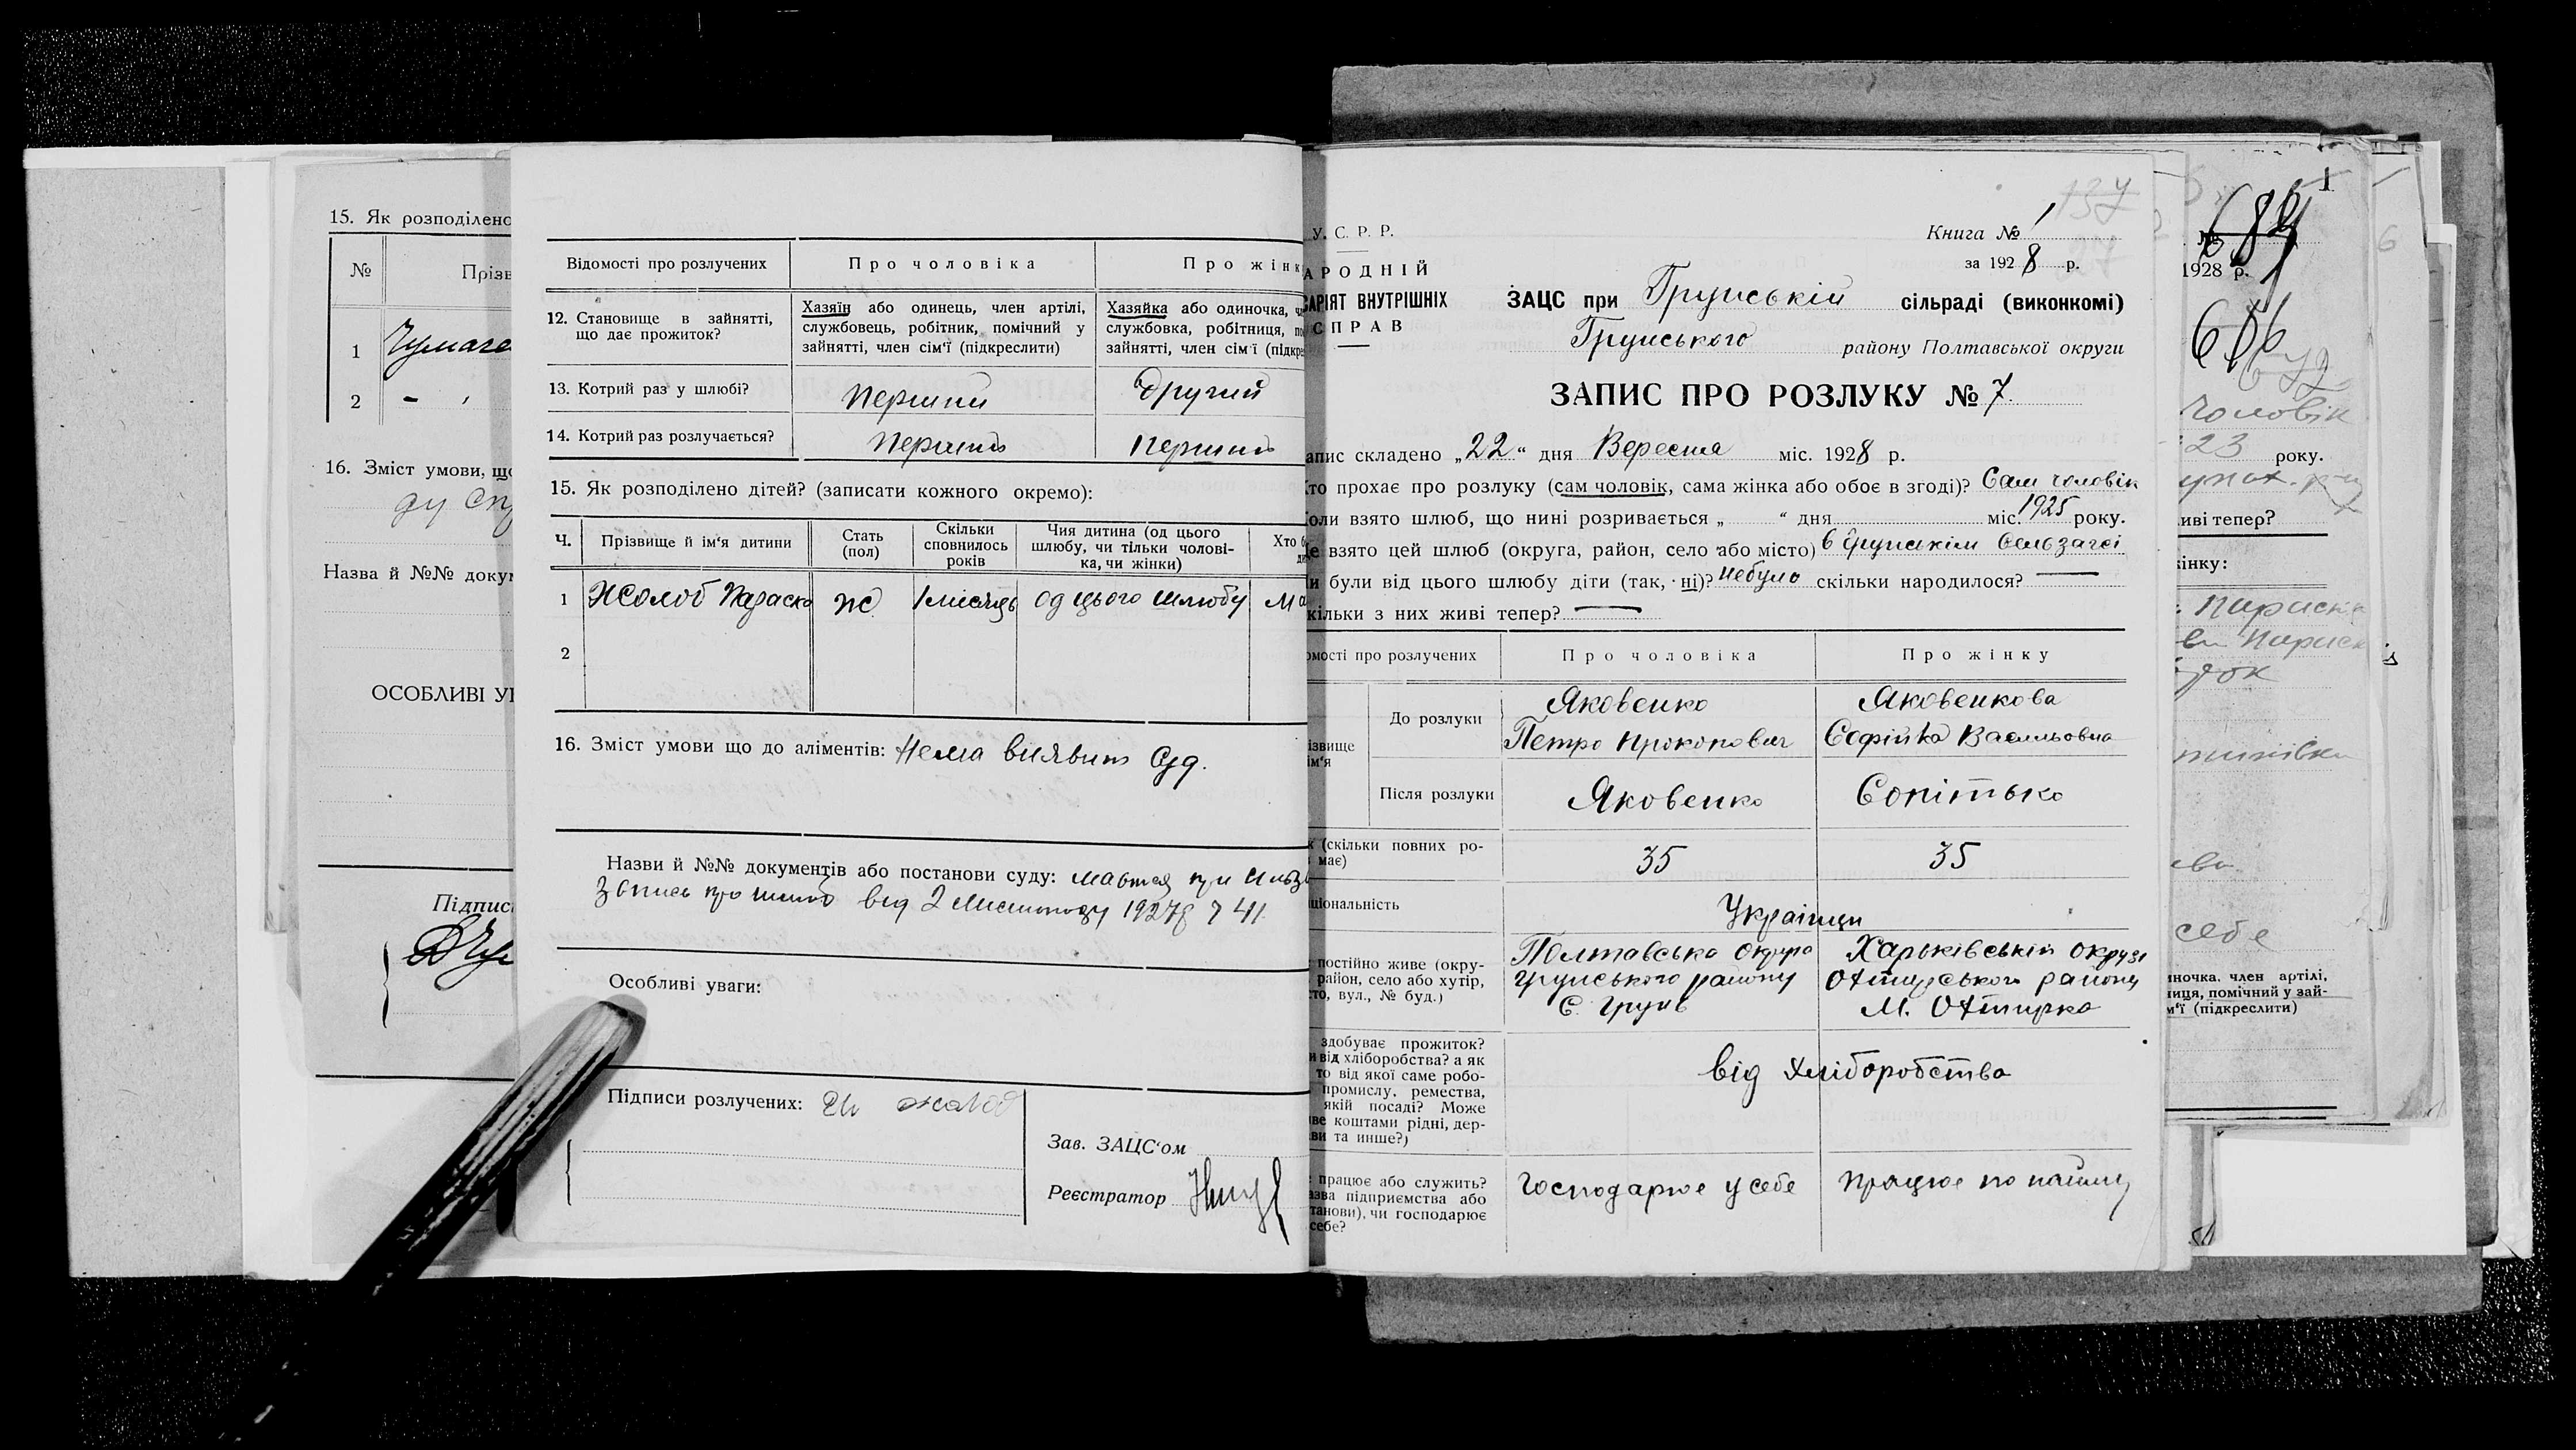 15. Як розподілено
№ Прізв
1 Чумаче
2 - '
16. Зміст умови, що
ду Спу
Назва й №№ докум
ОСОБЛИВІ УВ
Підпис
Відомості про розлучених Про чоловіка Про жінк
12. Становище в зайнятті, що дає прожиток?
Хазяїн або одинець, член артілі,
службовець, робітник, помічний у
зайнятті, член сім'ї (підкреслити)
Хазяйка або одиночка, ч
службовка, робітниця, по
зайнятті, член сім'ї (підкре
13. Котрий раз у шлюбі? Перший Другий
14. Котрий раз розлучається? Перший Перший
15. Як розподілено дітей? (записати кожного окремо):
Ч. Прізвище й ім'я дитини
Стать (пол)
Скільки сповнилось років
Чия дитина (од цього шлюбу, чи тільки чоловіка, чи жінки)
Хто б
1 Жолоб Параска ж 1 місяць од цього шлюбу Ма
2
16. Зміст умови що до аліментів: Нема виявит Суд.
Назви й №№ документів або постанови суду: мається при
запись про шлюб від 2 Листопаду 1927р 41
Особливі уваги:
Підписи розлучених: жолоб
Зав. ЗАЦС'ом
Реєстратор
137
У. С. Р. Р.
АРОДНІЙ
САРІЯТ ВНУТРІШНІХ
СПРАВ
Книга № 1
за 1928 р.
ЗАЦС при Грунській сільраді (виконкомі)
Грунського району Полтавської округи
ЗАПИС ПРО РОЗЛУКУ № 7
апис складено „22“ дня Вересня міс. 1928 р.
то прохає про розлуку (сам чоловік, сама жінка або обоє в згоді)? Сам чоловік
оли взято шлюб, що нині розривається „ “ дня міс. 1925 року.
е взято цей шлюб (округа, район, село або місто) в Грунскім Сельзагсі
и були від цього шлюбу діти (так, ні)? Небуло скільки народилося? —
кільки з них живі тепер? —
омості про розлучених Про чоловіка Про жінку
ізвище
ім'я
До розлуки
Яковенко
Петро Прокопович
Яковенкова
Софійка Васильовна
Після розлуки Яковенко Сопітько
к (скільки повних ро-
має)
35 35
ціональність Українци
постійно живе (окру-
район, село або хутір,
то, вул., № буд.)
Полтавська округа
Грунського району
С. Грунь
Харьківській окрузі
Охтирського району
М. Охтирка
здобуває прожиток?
и від хліборобства? а як
то від якої саме робо-
промислу, ремества,
якій посаді? Може
ве коштами рідні, дер-
ви та инше?)
від хліборобства
працює або служить?
зва підприємства або
танови), чи господарює
себе?
Господарює у себе
Працює по найму
1
1928 р.
чоловік
23 року.
иві тепер?
інку:
себе
ночка, член артілі,
иця, помічний у зай-
м'ї (підкреслити)
6